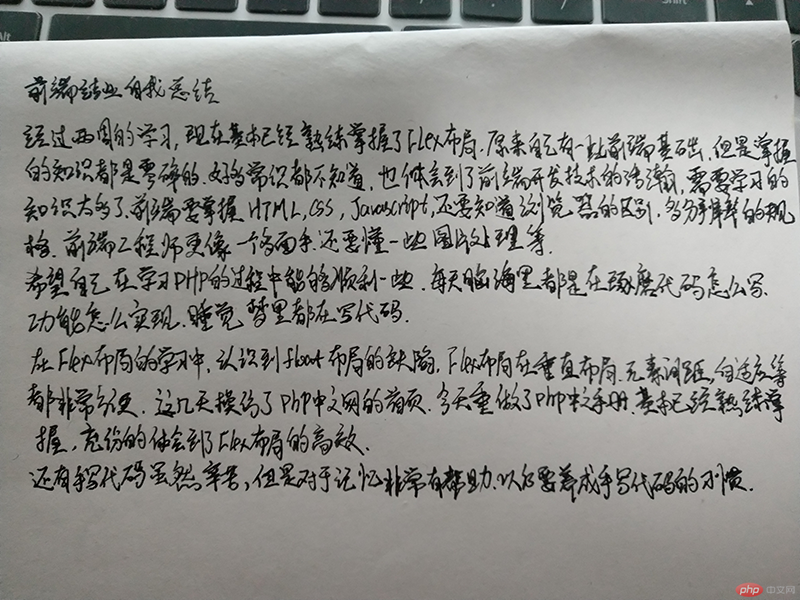 前端结业自我总结
经过两周的学习,现在基本已经熟练掌握了Flex布局.原来自己有一些前端基础,但是掌握
的知识都是零碎的.好多常识都不知道,也体会到了前端开发技术的浩瀚,需要学习的
知识太多了.前端需要掌握HTML,CSS,Javascript,还要知道浏览器的区别,多分辨率的规
格.前端工程师更像一个多面手.还要懂一些图片处理等.
希望自己在学习PHP的过程中能够顺利一些.每天脑海里都是在琢磨代码怎么写.
功能怎么实现.睡觉梦里都在写代码.
在Flex布局的学习中,认识到float布局的缺陷,Flex布局在垂直布局.元素间距,自适应等
都非常方便.这几天模仿了PhP中文网的首页.今天重做了PhP中文手册.基本已经熟练掌
握,充份的体会到了Flex布局的高效.
还有手写代码虽然辛苦,但是对于记忆非常有帮助.以后要养成手写代码的习惯.
Alt
Shift
php 中文网